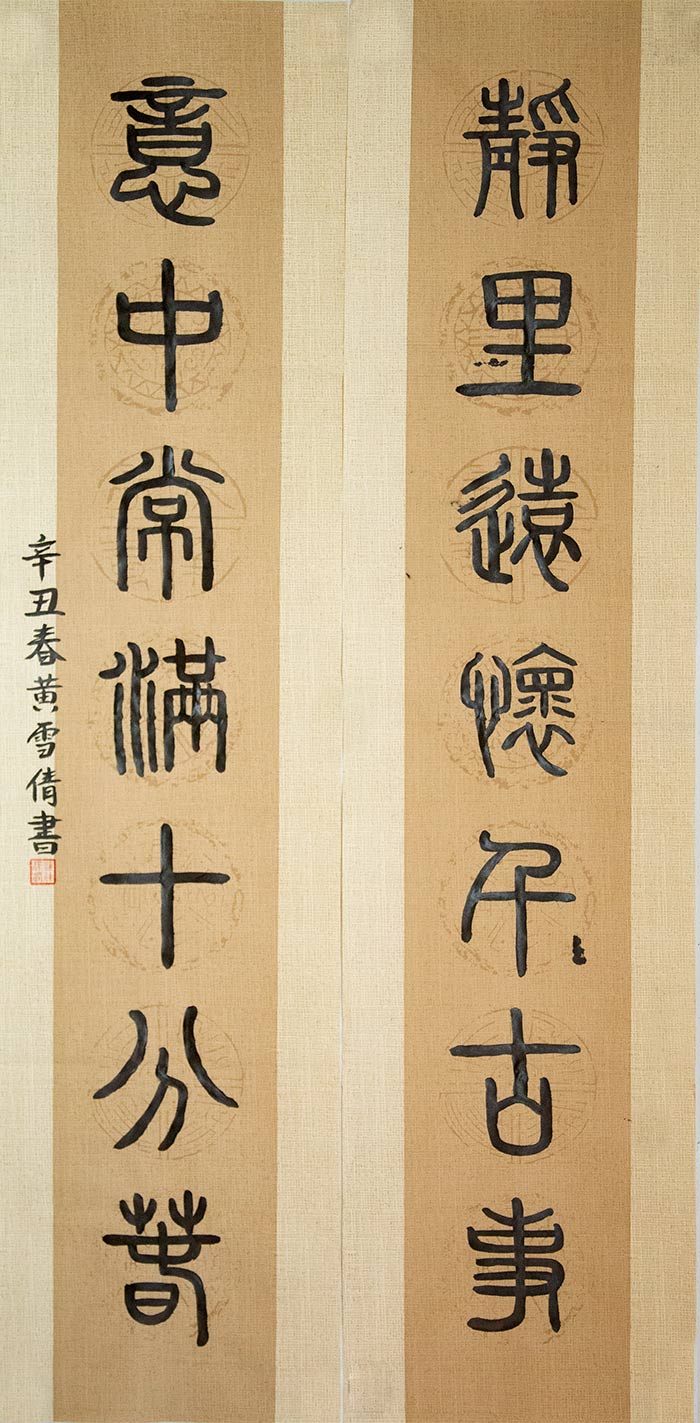 靜里遠懷千古事
意中常滿十分春
辛丑春黄雪倩書